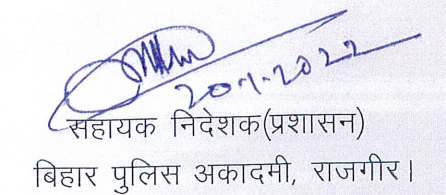 20-7-2022
सहायक निदेशक(प्रशासन)
बिहार पुलिस अकादमी, राजगीर।